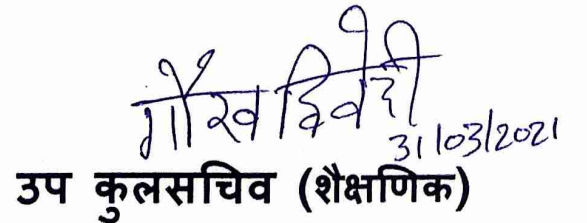 गौरव द्विवेदी
31/03/2021
उप कुलसचिव (शैक्षणिक)